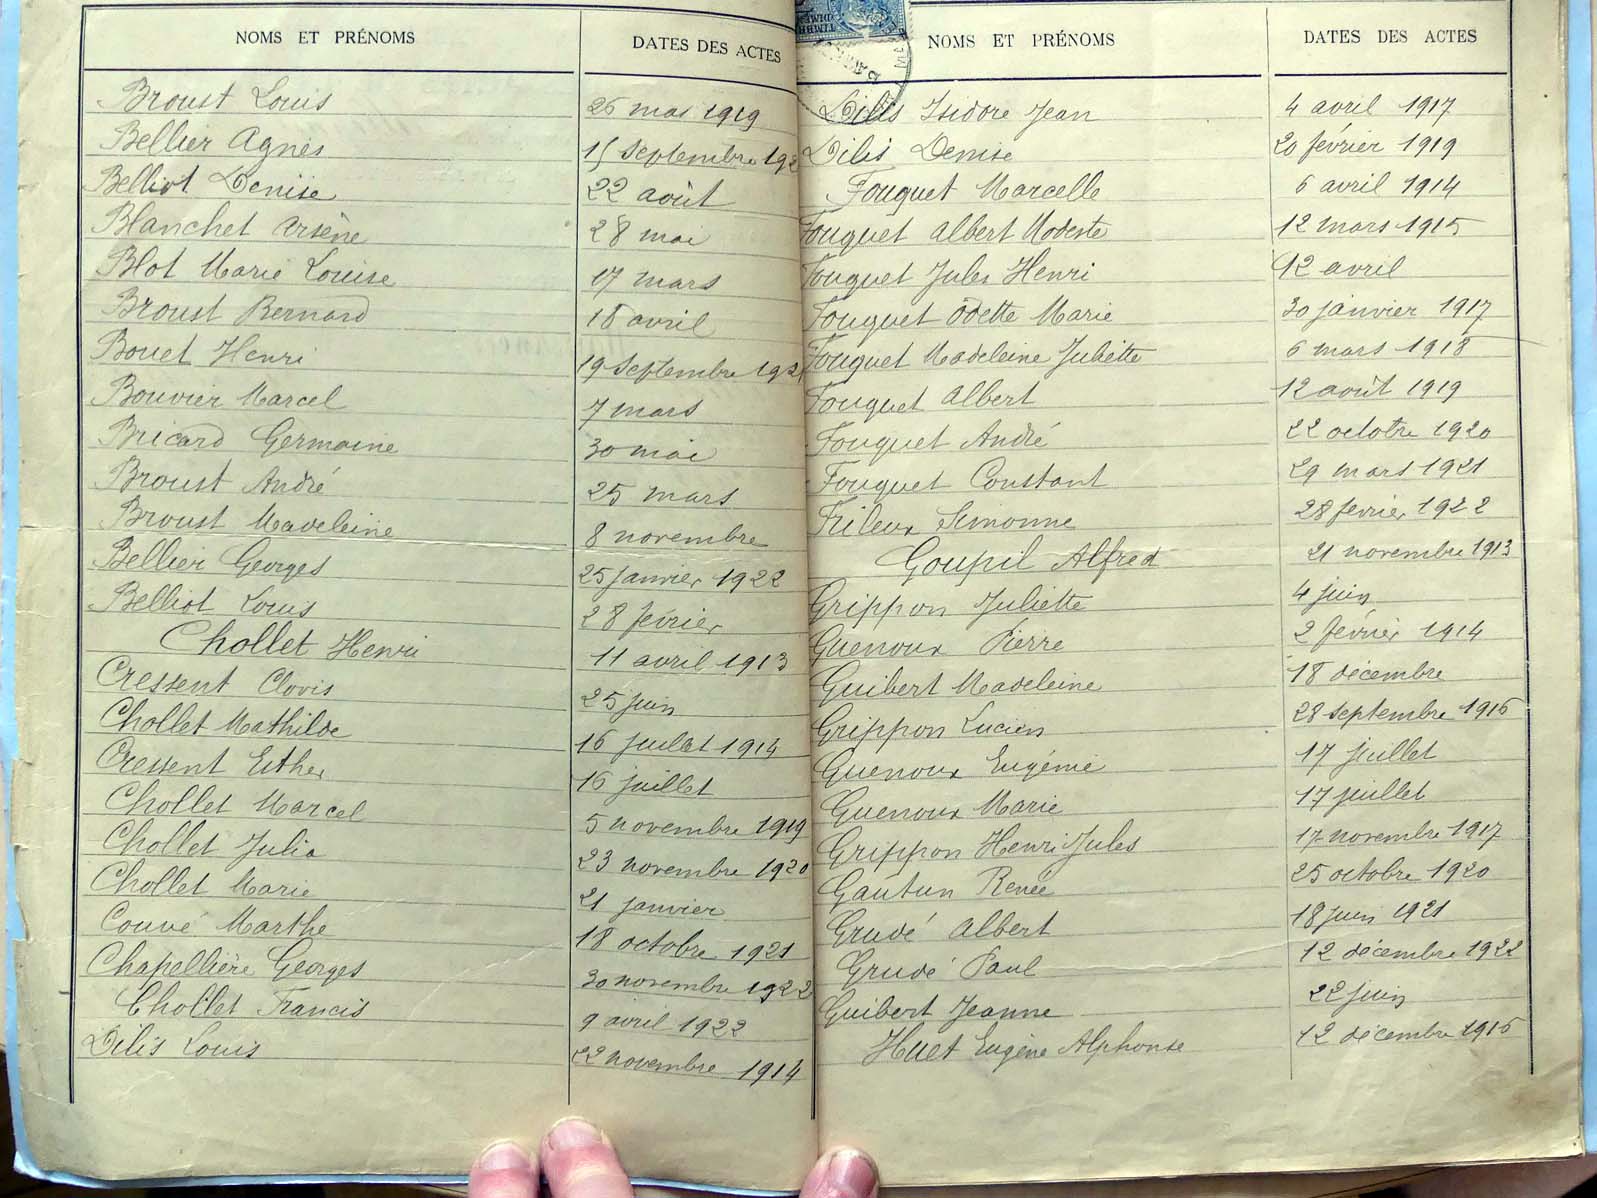 NOMS ET PRÉNOMS DATES DES ACTES
Broust Louis 26 mai 1919
Bellier Agnès 15 septembre 192
Belliot Denise 22 août
Blanchet Arsène 28 mai
Blot Marie Louise 17 mars
Broust Bernard 18 avril
Bouet Henri 19 septembre 1921
Bouvier Marcel 7 mars
Bricard Germaine 30 mai
Broust André 25 mars
Broust Madeleine 8 novembre
Bellier Georges 25 janvier 1922
Belliot Louis 28 février
Chollet Henri 11 avril 1913
Cressent Clovis 25 juin
Chollet Mathilde 16 juillet 1914
Cressent Esther 16 juillet
Chollet Marcel 5 novembre 1919
Chollet Julia 23 novembre 1920
Chollet Marie 21 janvier
Couvé Marthe 18 octobre 1921
Chapellière Georges 30 novembre 1922
Chollet Francis 9 avril 1922
Dilis Louis 22 novembre 1914
TIMBRE
NOMS ET PRÉNOMS DATES DES ACTES
Dilis Isidore Jean 4 avril 1917
Dilis Denise 20 février 1919
Fouquet Marcelle 6 avril 1914
Fouquet Albert Modeste 12 mars 1915
Fouquet Jules Henri 12 avril
Fouquet Odette Marie 30 janvier 1917
Fouquet Madeleine Juliette 6 mars 1918
Fouquet Albert 12 août 1919
Fouquet André 22 octobre 1920
Fouquet Constant 29 mars 1921
Frileux Simonne 28 février 1922
Goupil Alfred 21 novembre 1913
Grippon Juliette 4 juin
Guenoux Pierre 2 février 1914
Guibert Madeleine 18 décembre
Grippon Lucien 28 septembre 1916
Guenoux Eugénie 17 juillet
Guenoux Marie 17 juillet
Grippon Henri Jules 17 novembre 1917
Gautun Renée 25 octobre 1920
Grudé Albert 18 juin 1921
Grudé Paul 12 décembre 1922
Guibert Jeanne 22 juin
Huet Eugène Alphonse 12 décembre 1915